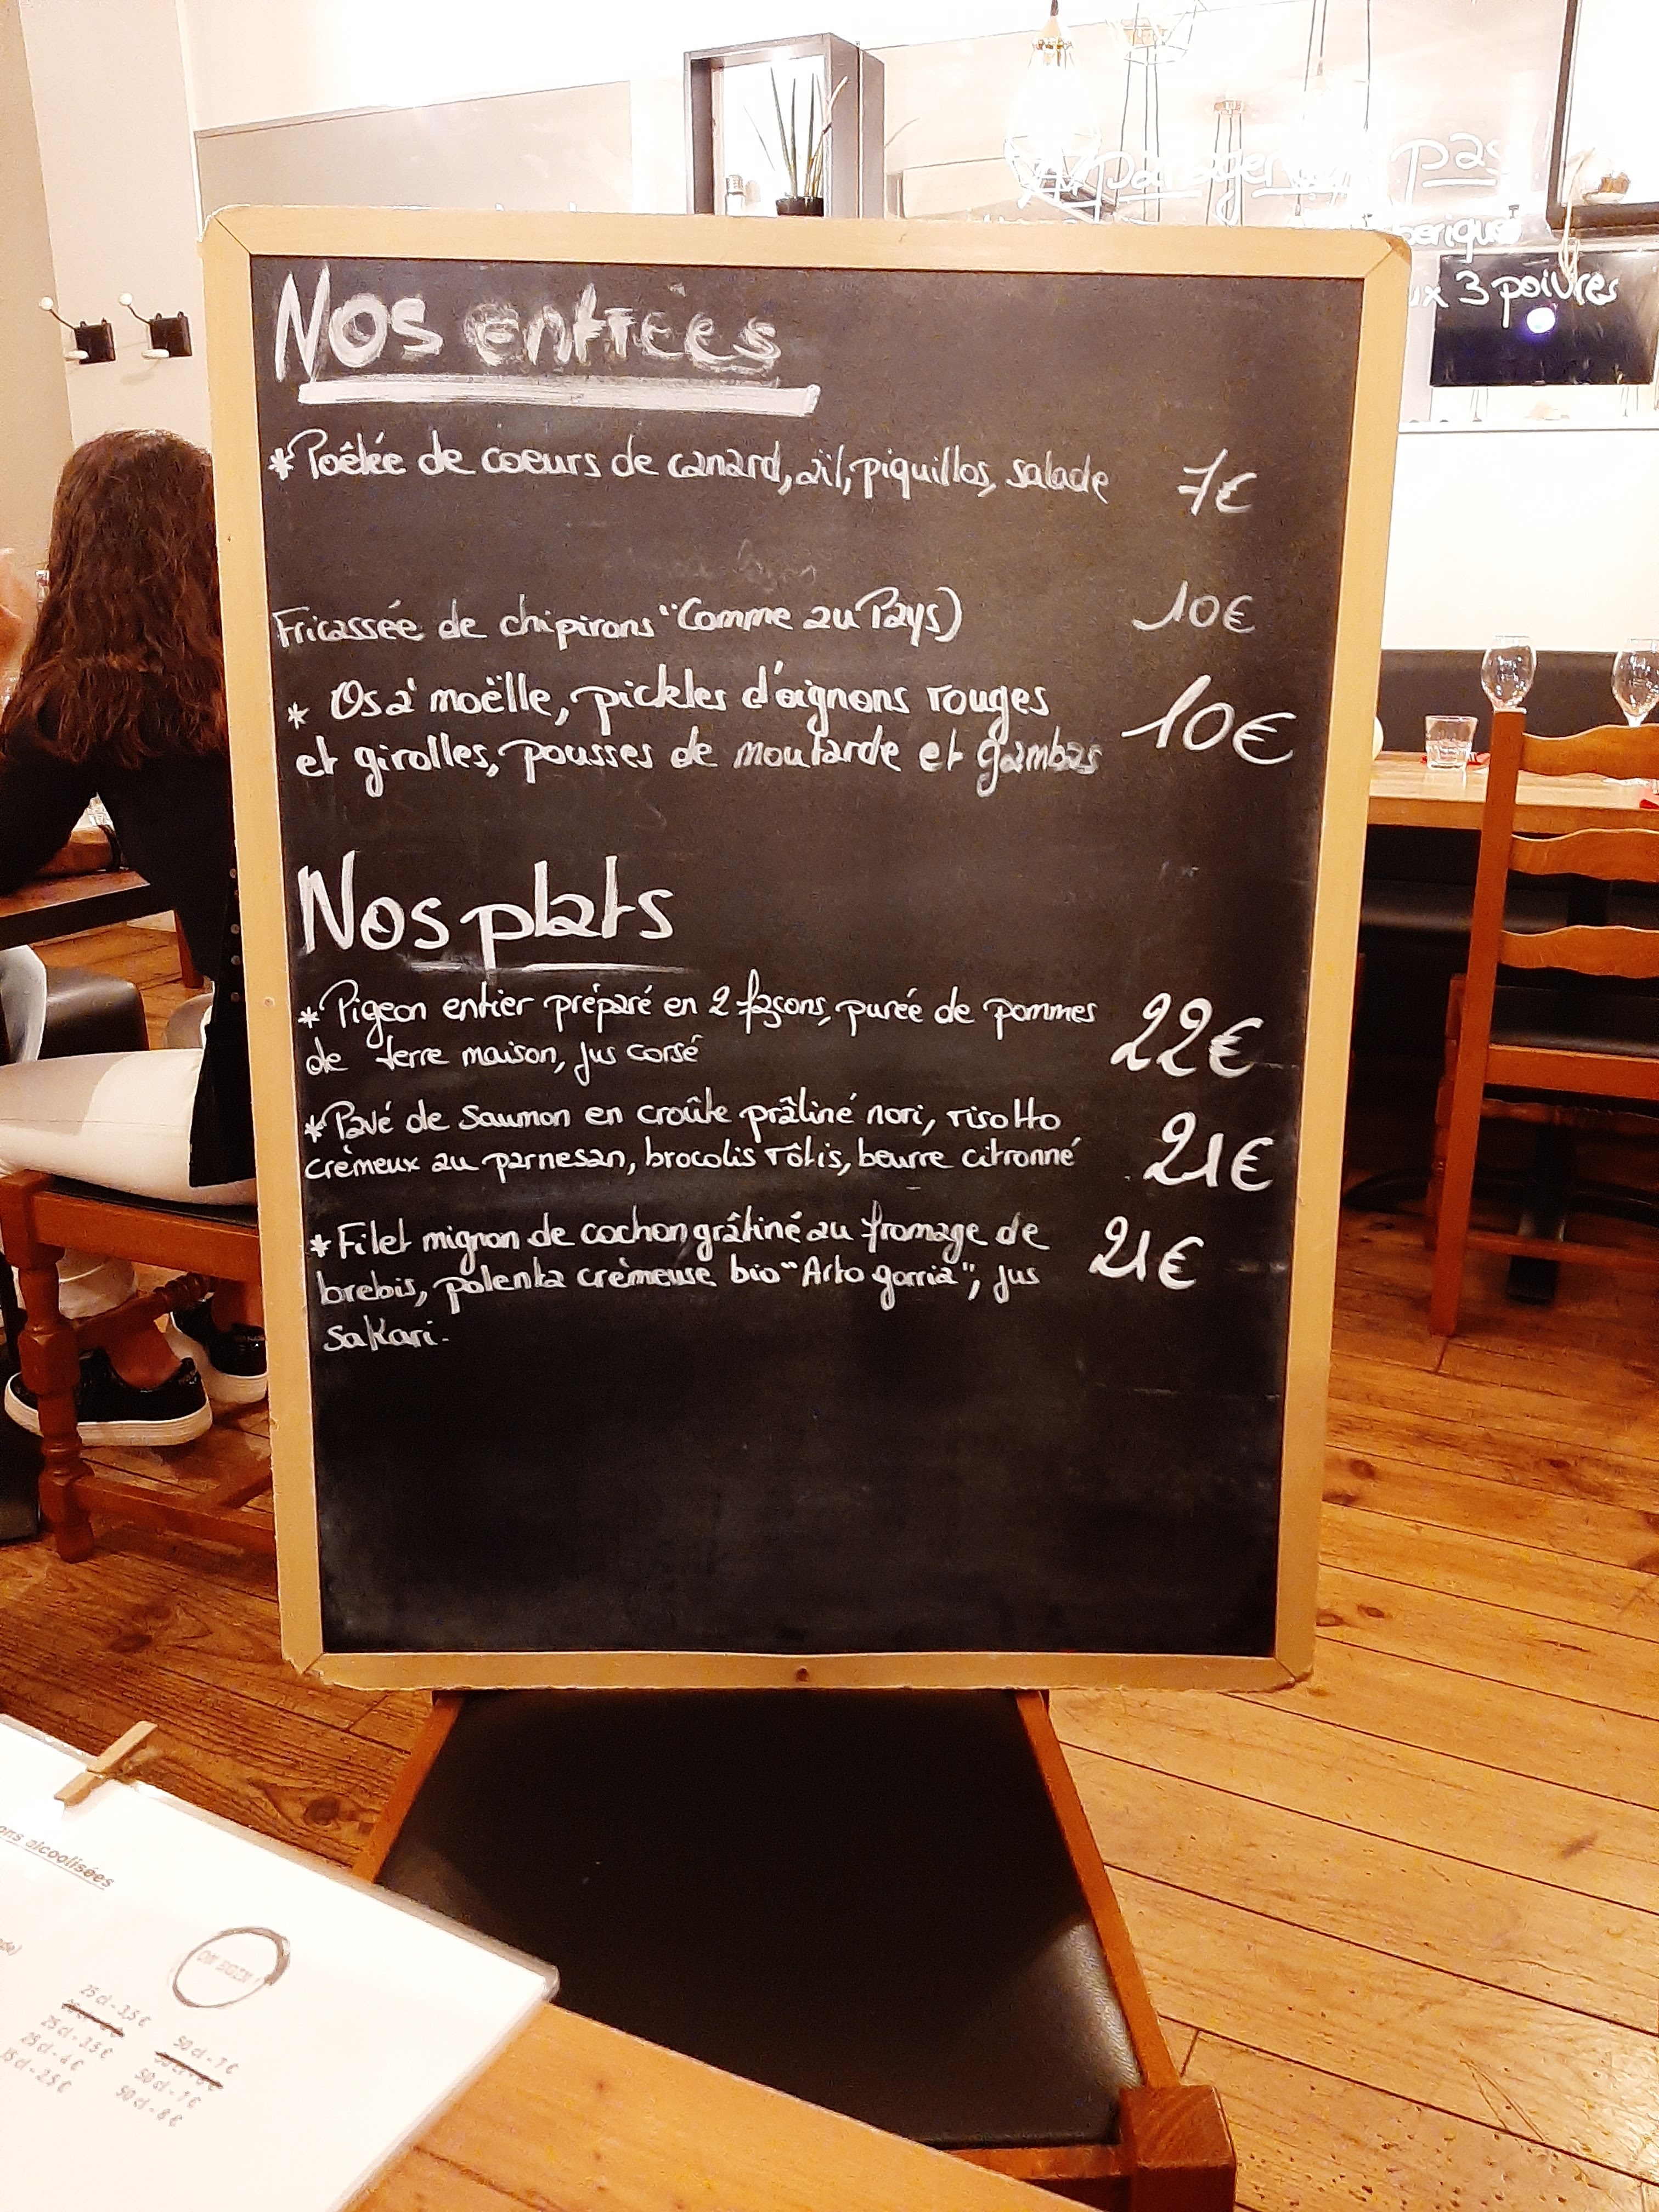 Nos entrées
*Poêlée de coeurs de canard, aïl, piquillos, salade 7€
Fricassée de chipirons "Comme au Pays) 10€
* Os à moëlle, pickles d'oignons rouges
et girolles, pousses de moutarde et gambas 10€
Nos plats
*Pigeon entier préparé en 2 façons, purée de pommes
de terre maison, jus corsé 22€
*Pavé de saumon en croûte prâliné nori, risotto
crèmeux au parmesan, brocolis rôtis, beurre citronné 21€
*Filet mignon de cochon grâtiné au fromage de
brebis, polenta crèmeuse bio "Arto gorria", jus 21€
sakari.
pas
3 poivres
ons alcoolisées
25 cl - 3,5 €
25 cl - 3.5 €
25 cl - 4 €
50 cl - 7 €
50 cl - 7 €
50 cl - 8 €